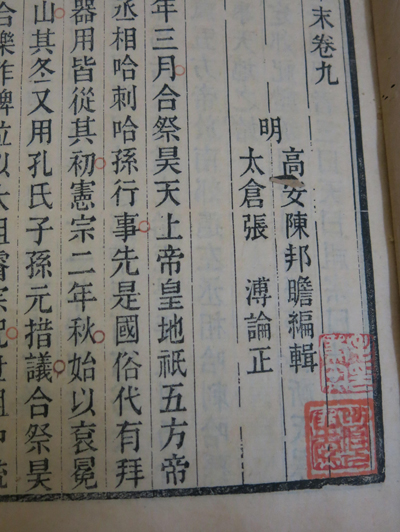 末卷九
高安陳邦瞻編輯
明
太倉張溥論正
年三月合祭昊天上帝皇地祇五方帝
丞相哈剌哈孫行事先是國俗代有拜
器用皆從其初憲宗二年秋始以袞冕
山其冬又用孔氏子孫元措議合祭昊
合樂作牌位以太祖睿宗配世祖中統